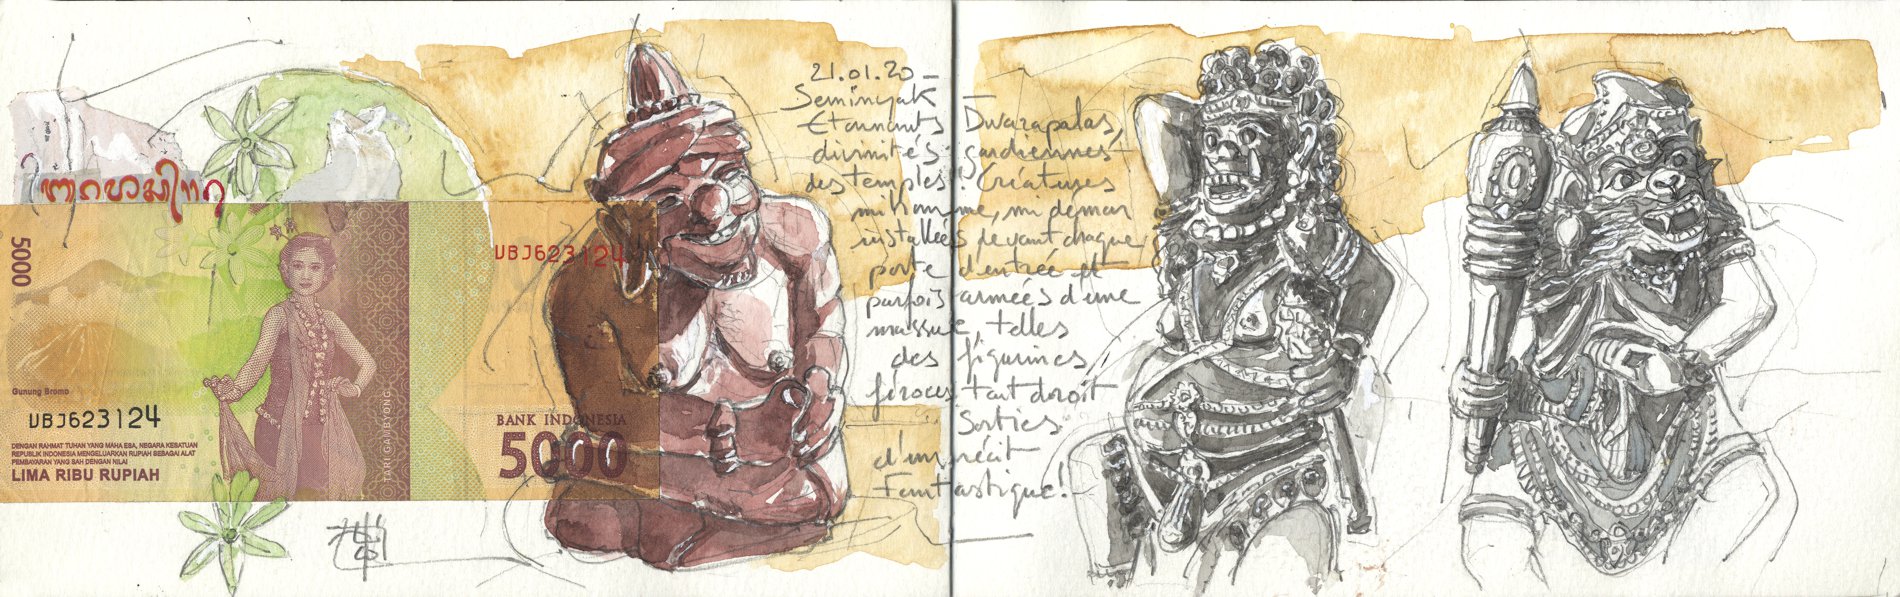 5000
UBJ623124
Gunung Bromo
UBJ623124
DENGAN RAHMAT TUHAN YANG MAHA ESA, NEGARA KESATUAN
REPUBLIK INDONESIA MENGELUARKAN RUPIAH SEBAGAI ALAT
PEMBAYARAN YANG SAH DENGAN NILAI
LIMA RIBU RUPIAH
TARI GAMBYONG
BANK INDONESIA
5000
21.01.20_
Seminyak
Etonnants Dwarapalas,
divinités gardiennes
des temples. Créatures
mi homme, mi démon
installées devant chaque
porte d'entrée et
parfois armées d'une
massue, telles
des figurines
féroces tout droit
sorties
d'un récit
Fantastique!